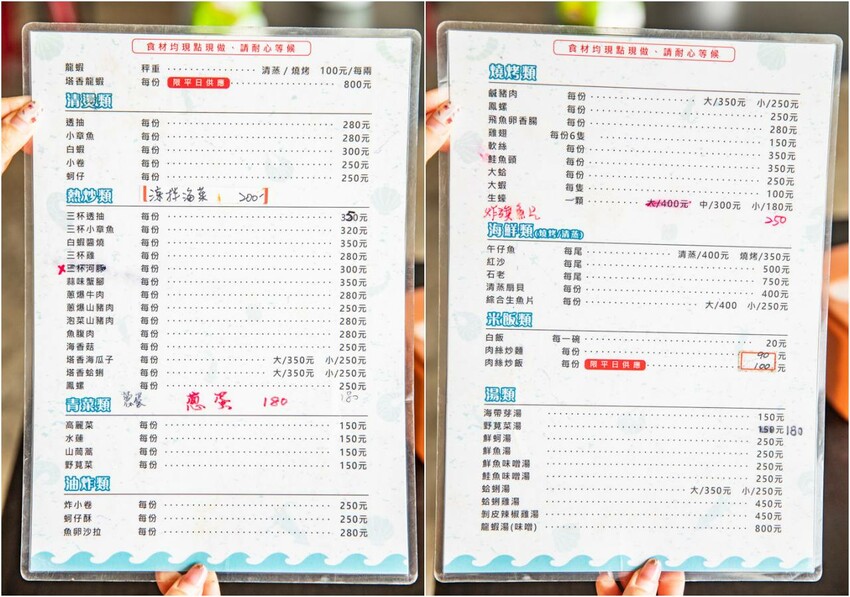 食材均現點現做、請耐心等候
龍蝦 秤重 清蒸/燒烤 100元/每兩
塔香龍蝦 每份 限平日供應 800元
清燙類
透抽 每份 280元
小章魚 每份 280元
白蝦 每份 300元
小卷 每份 250元
蚵仔 每份 250元
熱炒類 涼拌海菜 200
三杯透抽 每份 350元
三杯小章魚 每份 320元
白蝦醬燒 每份 350元
三杯雞 每份 280元
x 三杯河豚 每份 300元
蒜味蟹腳 每份 350元
蔥爆牛肉 每份 280元
蔥爆山豬肉 每份 280元
泡菜山豬肉 每份 280元
魚腹肉 每份 280元
海香菇 每份 250元
塔香海瓜子 每份 大/350元 小/250元
塔香蛤蜊 每份 大/350元 小/250元
鳳螺 每份 250元
青菜類 蔥蛋 180 180
高麗菜 每份 150元
水蓮 每份 150元
山茼蒿 每份 150元
野莧菜 每份 150元
油炸類
炸小卷 每份 250元
蚵仔酥 每份 250元
魚卵沙拉 每份 280元
食材均現點現做、請耐心等候
燒烤類
鹹豬肉 每份 大/350元 小/250元
鳳螺 每份 250元
飛魚卵香腸 每份 280元
雞翅 每份6隻 150元
軟絲 每份 350元
鮭魚頭 每份 350元
大蛤 每份 250元
大蝦 每隻 100元
生蠔 一顆 大/400元 中/300元 小/180元
炸魚片 250
海鮮類(燒烤/清蒸)
午仔魚 每尾 清蒸/400元 燒烤/350元
紅沙 每尾 500元
石老 每尾 750元
清蒸扇貝 每份 400元
綜合生魚片 每份 大/400 小/250元
米飯類
白飯 每一碗 20元
肉絲炒麵 每份 90元
肉絲炒飯 每份 限平日供應 100元
湯類
海帶芽湯 150元
野莧菜湯 150元 180
鮮蚵湯 250元
鮮魚湯 250元
鮮魚味噌湯 250元
鮭魚味噌湯 250元
蛤蜊湯 大/350元 小/250元
蛤蜊雞湯 450元
剝皮辣椒雞湯 450元
龍蝦湯(味噌) 800元